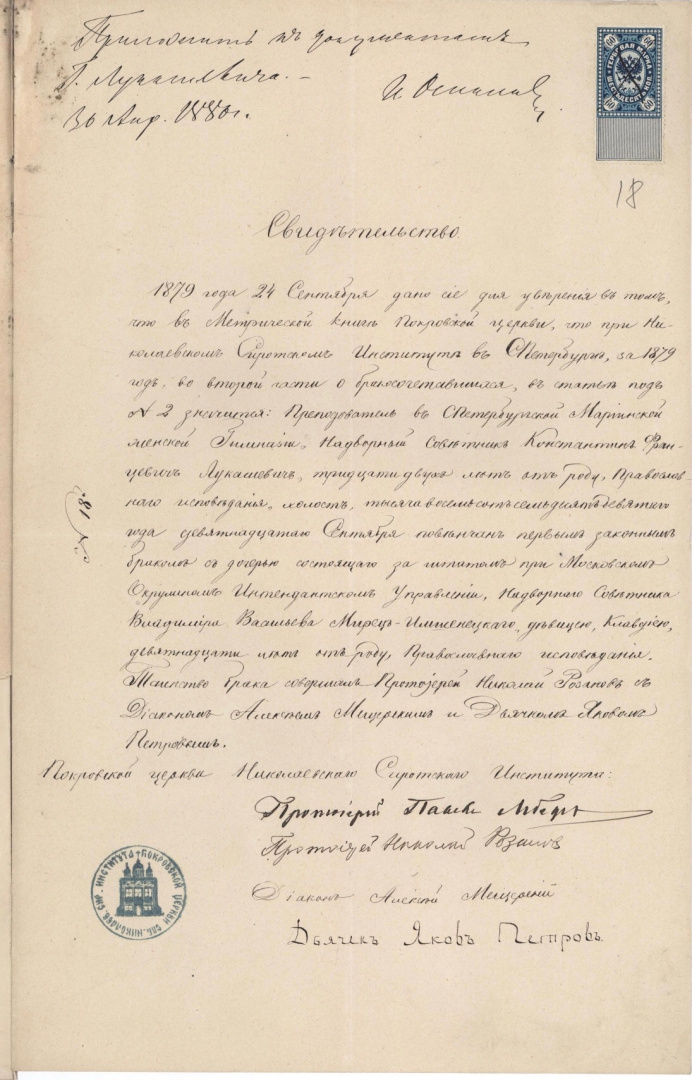 Приложить къ документамъ
Г. Лукашевича. –
30 Апр. 1880 г.
И. Осинов
60 60
ГЕРБОВАЯ МАРКА
ШЕСТЬДЕСЯТЪ КОП.
60 60
18
Свидѣтельство
1879 года 24 Сентября дано сіе для увѣренія въ томъ,
что въ Метрической книгѣ Покровской церкви, что при Ни-
колаевскомъ Сиротскомъ Институтѣ въ СПетербургѣ, за 1879
годъ, во второй части о бракосочетавшихся, въ статьѣ подъ
№ 2 значится: Преподователь въ СПетербургской Маріинской
женской Гимназіи, Надворный Совѣтникъ Константинъ Фран-
цевичъ Лукашевичъ, тридцати двухъ лѣтъ отъ роду, Православ-
наго исповѣданія, холостъ, тысяча восемьсотъ семьдесятъ девятаго
года девятнадцатаго Сентября повѣнчанъ первымъ законнымъ
бракомъ съ дочерью состоящаго за штатомъ при Московскомъ
Окружномъ Интендантскомъ Управленіи, Надворнаго Совѣтника
Владиміра Васильева Мирецъ-Имшенецкаго, дѣвицею, Клавдіею,
девятнадцати лѣтъ отъ роду, Православнаго исповѣданія.
Таинство брака совершалъ Протоіерей Николай Розановъ съ
Діакономъ Алексѣемъ Мещерскимъ и Дьячкомъ Яковомъ
Петровымъ.
№ 18.
Покровской церкви Николаевскаго Сиротскаго Института:
Протоіерей Павелъ
Протоіерей Николай Розановъ
Діаконъ Алексѣй Мещерскій
Дьячекъ Яковъ Петровъ.
ПОКРОВСКОЙ ЦЕРКВИ СПБ. НИКОЛАЕВ. СИР. ИНСТИТУТА